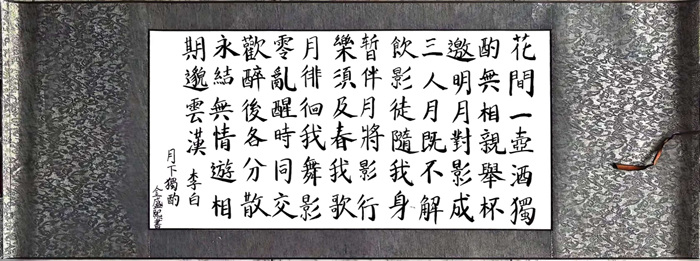 花間一壺酒獨
酌無相親舉杯
邀明月對影成
三人月既不解
飲影徒隨我身
暫伴月將影行
樂須及春我歌
月徘徊我舞影
零亂醒時同交
歡醉後各分散
永結無情遊相
期邈雲漢
李白
月下獨酌